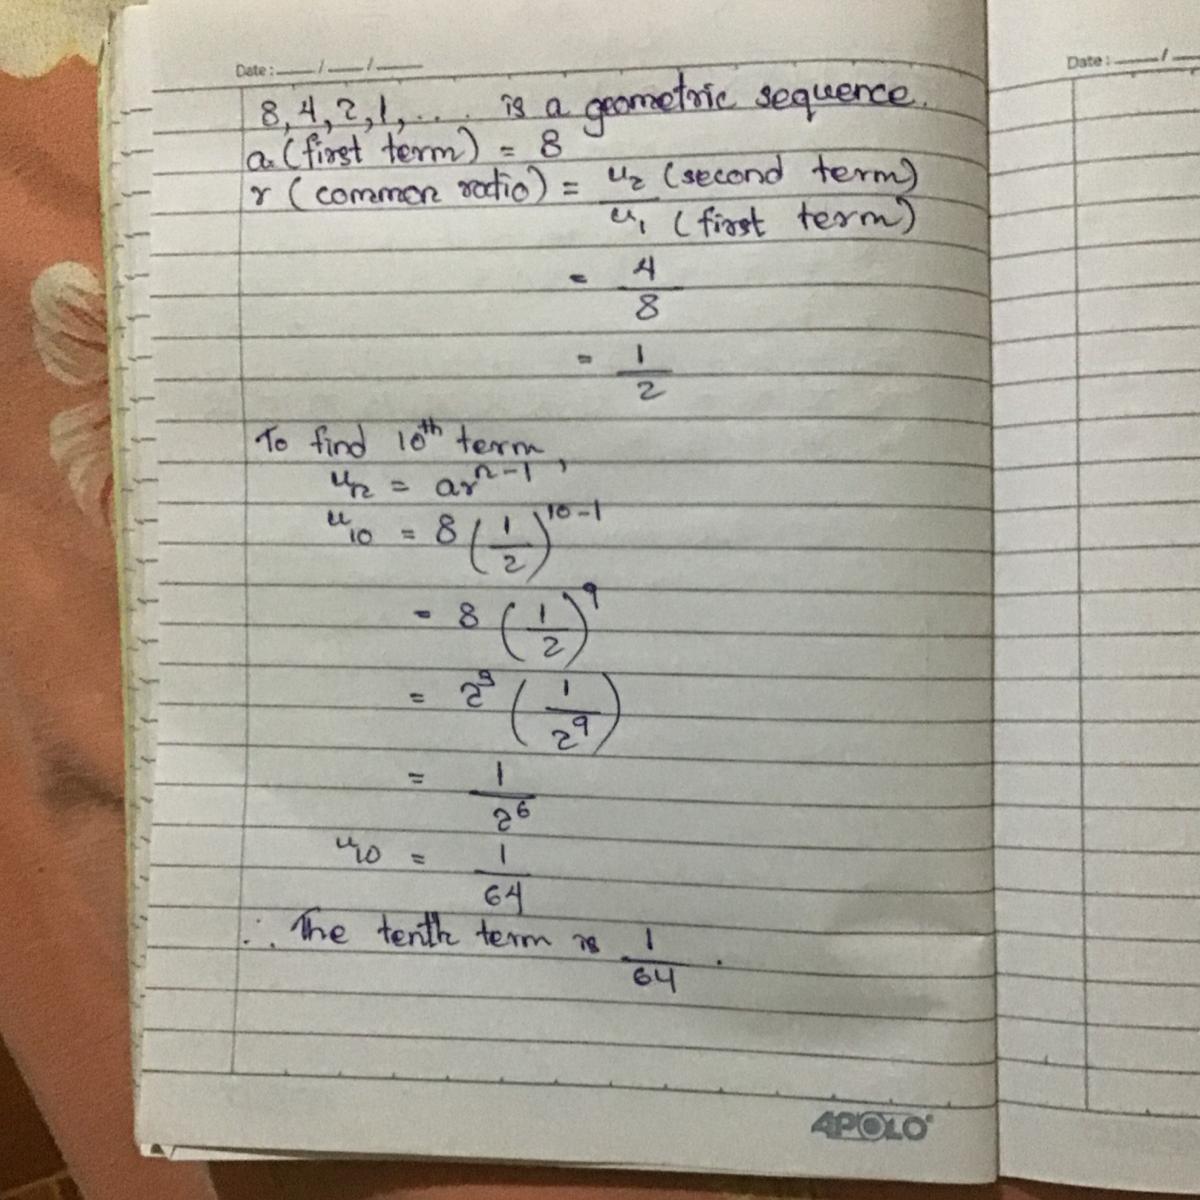 Date: ___/___/___
8, 4, 2, 1, .... is a geometric sequence.
a (first term) = 8
r (common ratio) = u₂ (second term) / u₁ (first term)
= 4/8
= 1/2
To find 10ᵗʰ term,
uₙ = arⁿ⁻¹
u₁₀ = 8 (1/2)¹⁰⁻¹
= 8 (1/2)⁹
= 2³ (1/2⁹)
= 1/2⁶
u₁₀ = 1/64
∴ The tenth term is 1/64.
APOLO
Date: ___/___